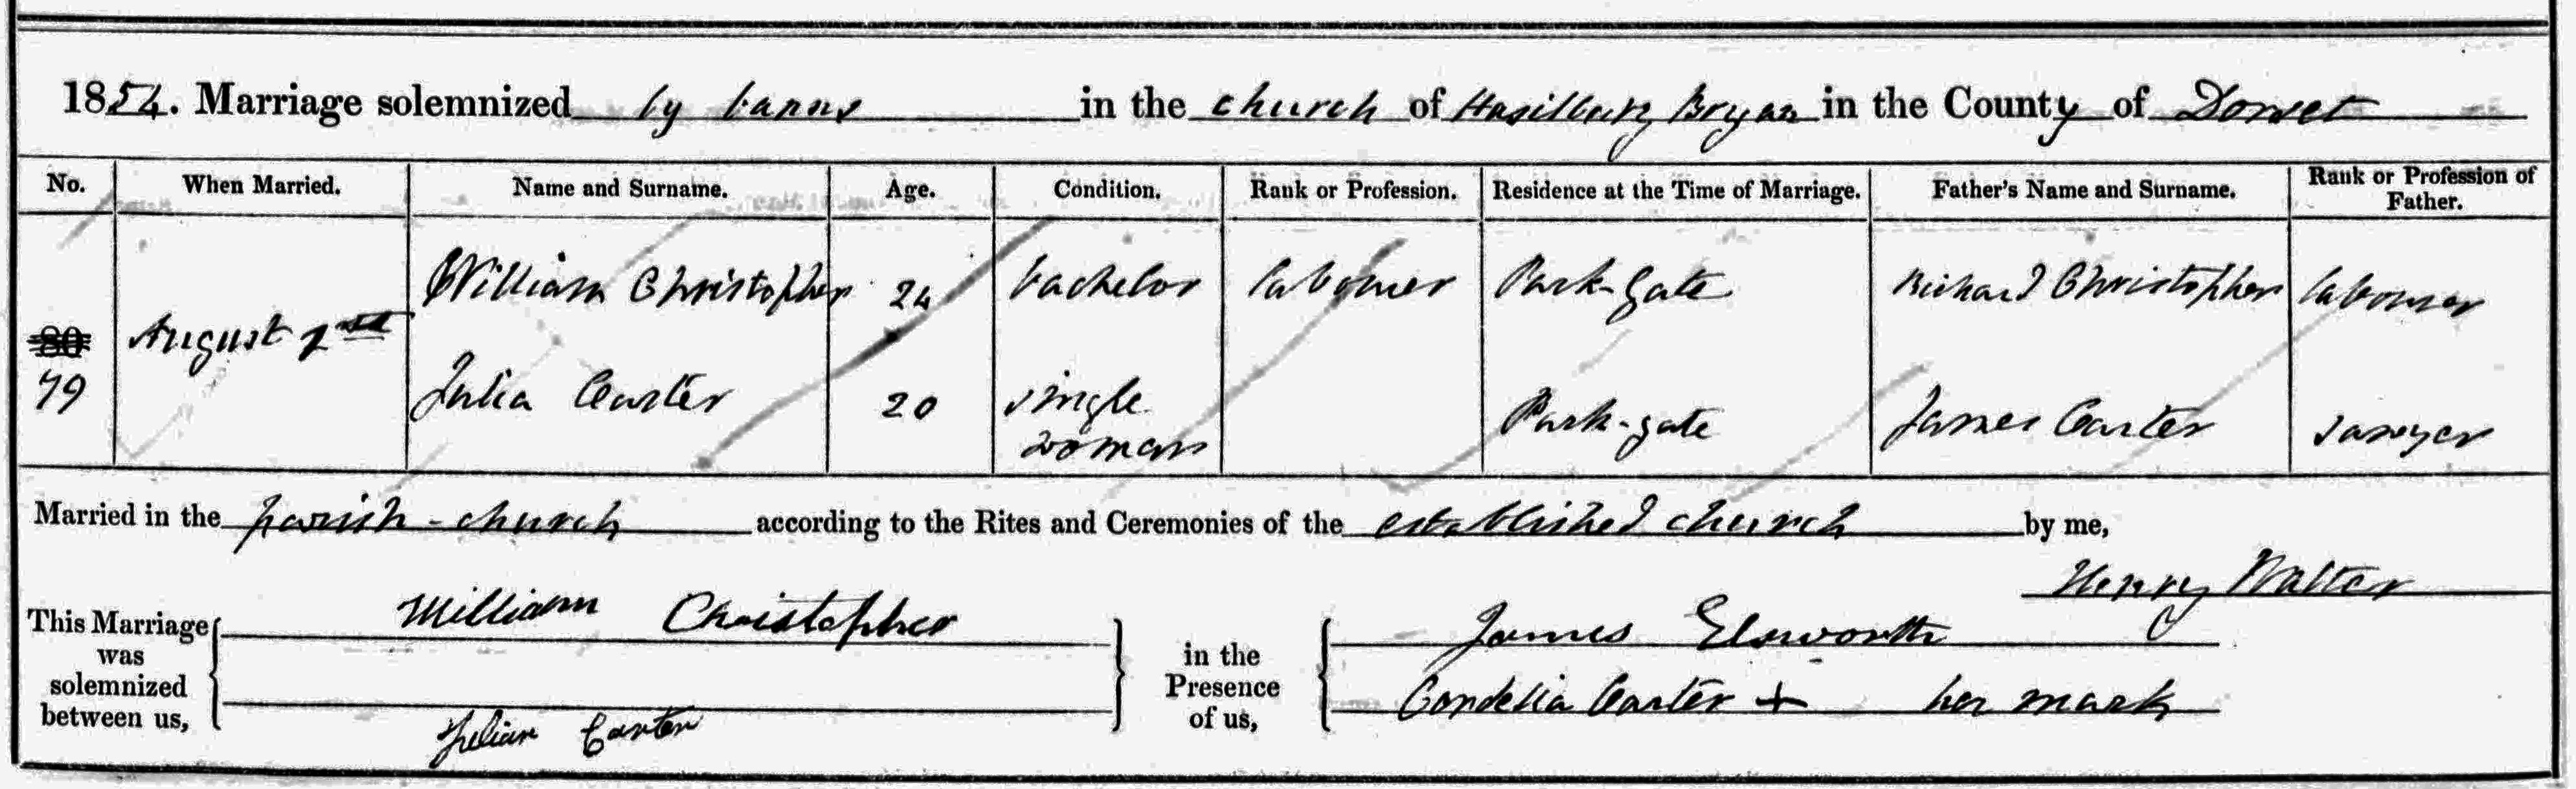 1854. Marriage solemnized by banns in the church of Hasilbury Bryan in the County of Dorset
No. When Married. Name and Surname. Age. Condition. Rank or Profession. Residence at the Time of Marriage. Father's Name and Surname. Rank or Profession of Father.
William Christopher 24 bachelor labourer Park-Gate Richard Christopher labourer
80 August 2nd
79 Julia Carter 20 single woman Park-gate James Carter sawyer
Married in the parish-church according to the Rites and Ceremonies of the established church by me,
Henry Walter
This Marriage was solemnized between us, William Christopher in the Presence of us, James Elsworth
Julian Carter Cordelia Carter + her mark